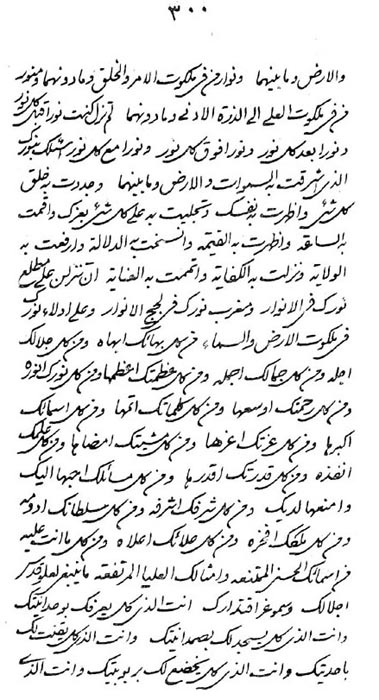 ٣٠٠
والارض وما بينهما ونوار من في ملكوت الامر والخلق وما دونهما ومنور
من في ملكوت العلى الى الذرة الادنى وما دونهما لم تزل كنت نورا قبل كل نور
ونورا بعد كل نور ونورا فوق كل نور ونورا مع كل نور اسئلك بنورك
الذي اشرقت به السموات والارض وما بينهما وجددت به خلق
كل شئ واظهرت به نفسك وتجليت به على كل شئ بعزك واقمت
به الساعة واظهرت به القيمة وانسخت به الدلالة وارفعت به
الولاية ونزلت به الكفاية واتممت به العناية ان تنزلن على مطلع
نورك في الانوار ومغرب نورك في لجج الانوار وعلى ادلاء نورك
في ملكوت الارض والسماء من كل بهائك ابهاه ومن كل جلالك
اجله ومن كل جمالك اجمله ومن كل عظمتك اعظمها ومن كل نورك انوره
ومن كل رحمتك اوسعها ومن كل كلماتك اتمها ومن كل اسمائك
اكبرها ومن كل عزتك اعزها ومن كل مشيتك امضاها ومن كل علمك
انفذه ومن كل قدرتك اقدرها ومن كل مسائلك احبها اليك
وامنعها لديك ومن كل شرفك اشرفه ومن كل سلطانك ادومه
ومن كل ملكك افخره ومن كل علائك اعلاه ومن كل ما انت عليه
من اسمائك الحسنى الممتنعه وامثالك العليا المرتفعة ما ينبغي لعلو قدس
اجلالك وسمو عز اقتدارك انت الذي كل يعرفك بوحدانيتك
وانت الذي كل يسجد لك بصمدانيتك وانت الذي كل يقنت لك
باحديتك وانت الذي كل يخضع لك بربوبيتك وانت الذي